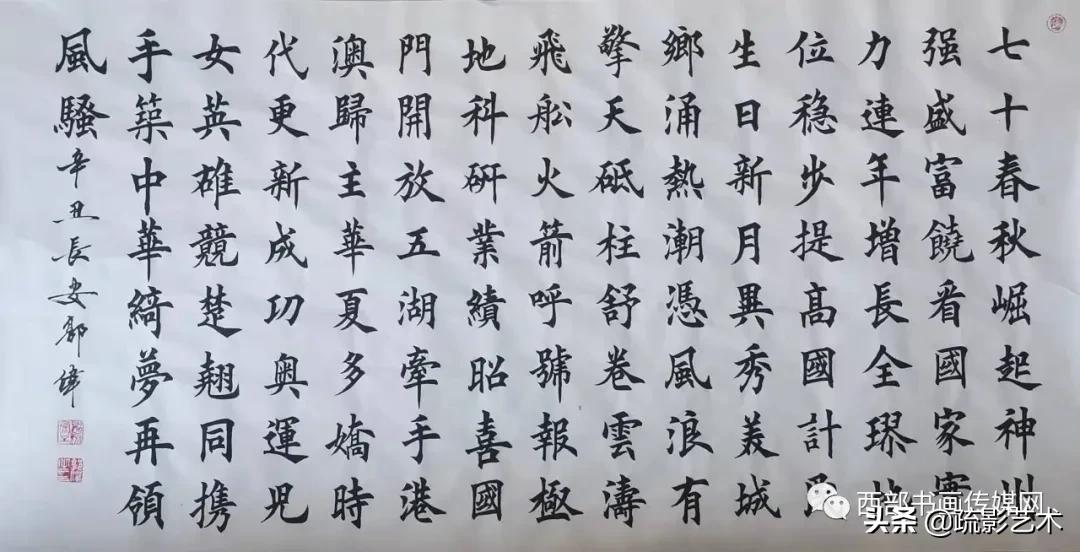 七十春秋崛起神州
强盛富饒看國家實
力連年增長全璆地
位稳步提高國計民
生日新月異秀美城
鄉涌熱潮憑風浪有
擎天砥柱舒卷雲濤
飛舩火箭呼號報極
地科研業績昭喜國
門開放五湖牽手港
澳歸主華夏多嬌時
代更新成功奥運兒
女英雄競楚翹同携
手築中華綺夢再領
風騷辛丑長安郭
西部书画传媒网
头条@疏影艺术